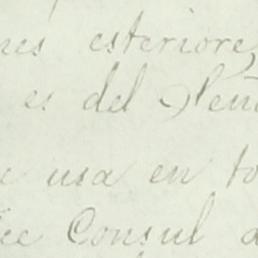 nes esteriore
es del Señ
e usa en to
ice Consul a